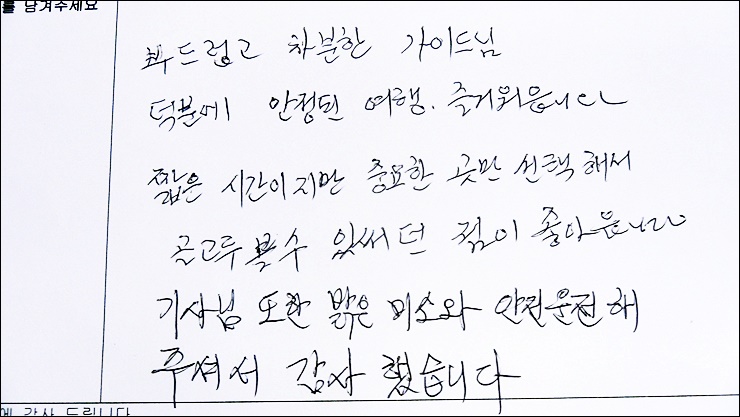 를 남겨주세요
부드럽고 차분한 가이드님
덕분에 안정된 여행. 즐거워읍니다
짧은 시간이지만 중요한 곳만 선택해서
골고루 볼수 있써던 점이 좋아읍니다
기사님 또한 밝은 미소와 안전운전해
주셔서 감사했습니다
에 감사 드립니다